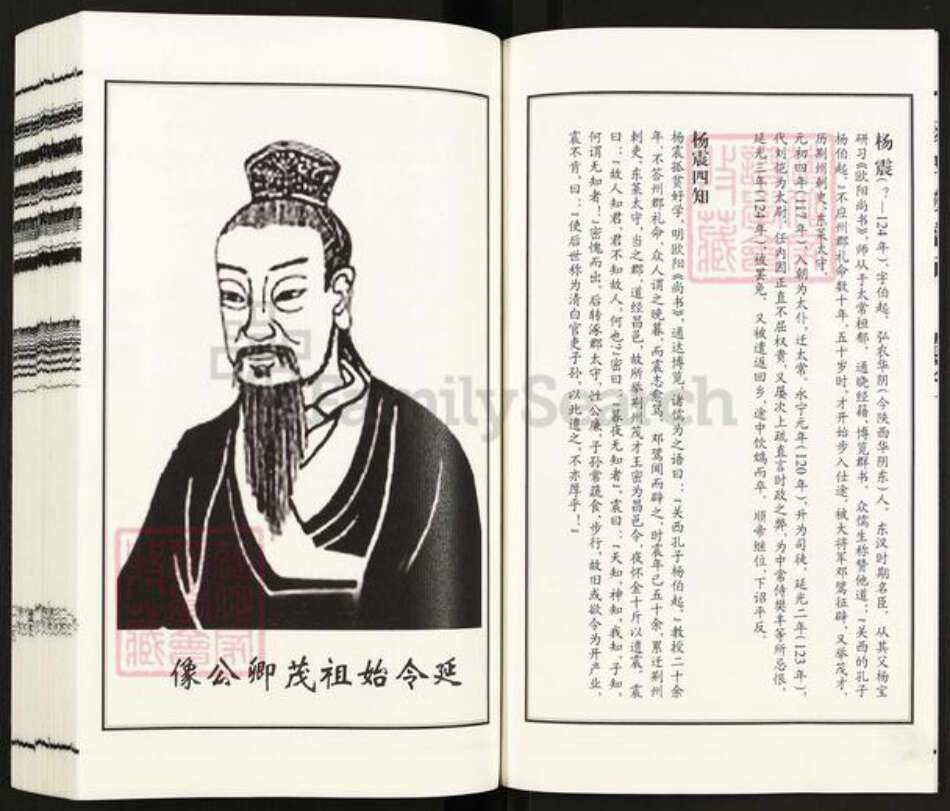 延令始祖茂卿公像
杨震(?—124年),字伯起。弘农华阴(今陕西华阴东)人。东汉时期名臣。从其父杨宝
研习《欧阳尚书》,师从于太常桓郁。通晓经籍,博览群书。众儒生称赞他道:“关西的孔子
杨伯起。”不应州郡礼命数十年,五十岁时,才开始步入仕途。被大将军邓骘征辟,又举茂才,
历荆州刺史、东莱太守。
元初四年(117年),入朝为太仆,迁太常。永宁元年(120年),升为司徒。延光二年(123年),
代刘恺为太尉。任内因正直不屈权贵,又屡次上疏直言时政之弊,为中常侍樊丰等所忌恨。
延光三年(124年),被罢免。又被遣返回乡,途中饮鸩而卒。顺帝继位,下诏平反。
杨震四知
杨震孤贫好学,明欧阳《尚书》,通达博览,诸儒为之语曰:“关西孔子杨伯起。”教授二十余
年,不答州郡礼命,众人谓之晚暮,而震志愈笃。邓骘闻而辟之,时震年已五十余,累迁荆州
刺史、东莱太守。当之郡,道经昌邑,故所举荆州茂才王密为昌邑令,夜怀金十斤以遗震。震
曰:“故人知君,君不知故人,何也?”密曰:“暮夜无知者”。震曰:“天知,神知,我知,子知,
何谓无知者!”密愧而出。后转涿郡太守。性公廉,子孙常蔬食、步行,故旧或欲令为开产业,
震不肯,曰:“使后世称为清白官吏子孙,以此遗之,不亦厚乎!”
FamilySearch